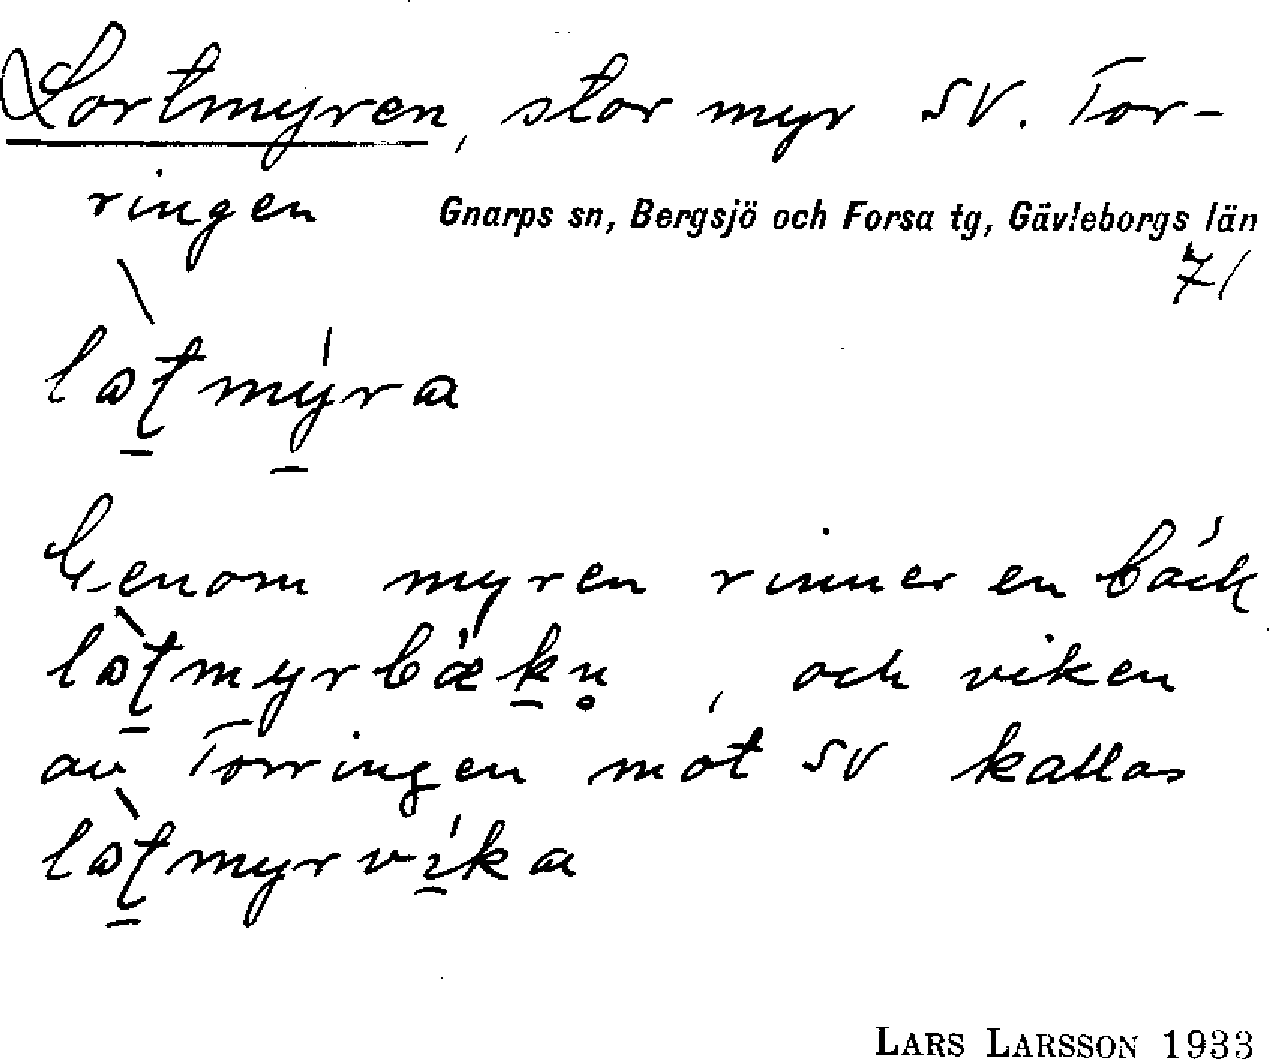 Lortmyren, stor myr SV. Tor-
ringen Gnarps sn, Bergsjö och Forsa tg, Gävleborgs län
71
Genom myren rinner en bäck
, och viken
av Torringen mot SV kallas
LARS LARSSON 1933